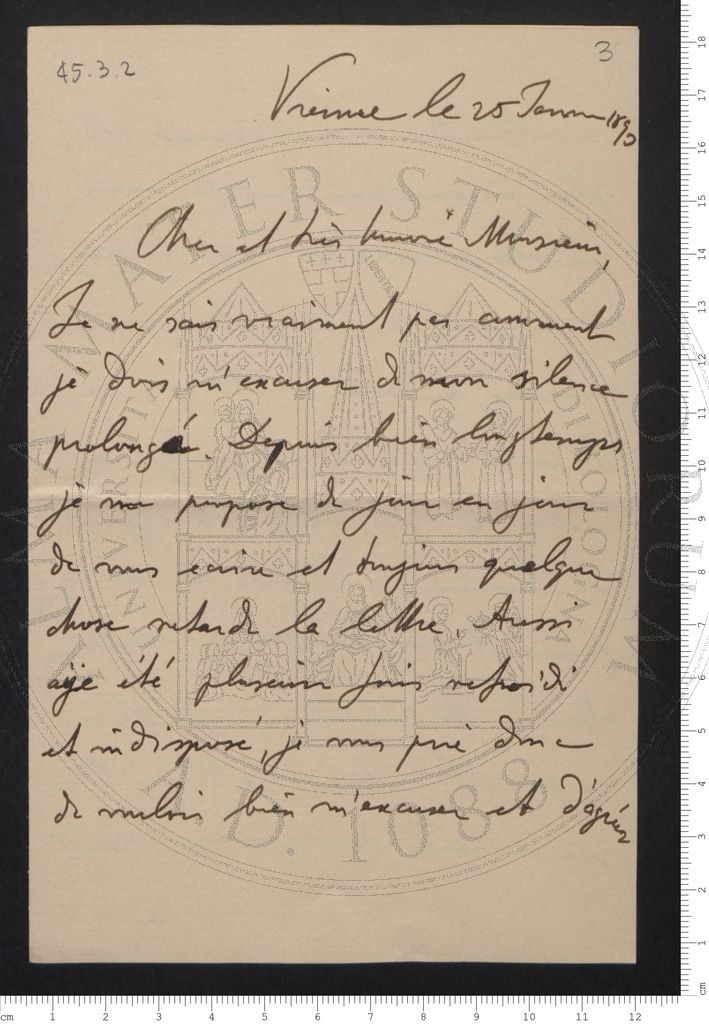 45.3.2
3
Vienne le 25 Janv 1890
Cher et très honoré Monsieur,
Je ne sais vraiment pas comment
je dois m'excuser de mon silence
prolongé. Depuis bien longtemps
je me propose de jour en jour
de vous ecrire et toujours quelque
chose retarde la lettre. Aussi
ajé été plusieurs fois refroidi
et indisposé, je vous prie donc
de vouloir bien m'excuser et d'agréer
ALMA MATER STUDIORUM
A.D. 1088